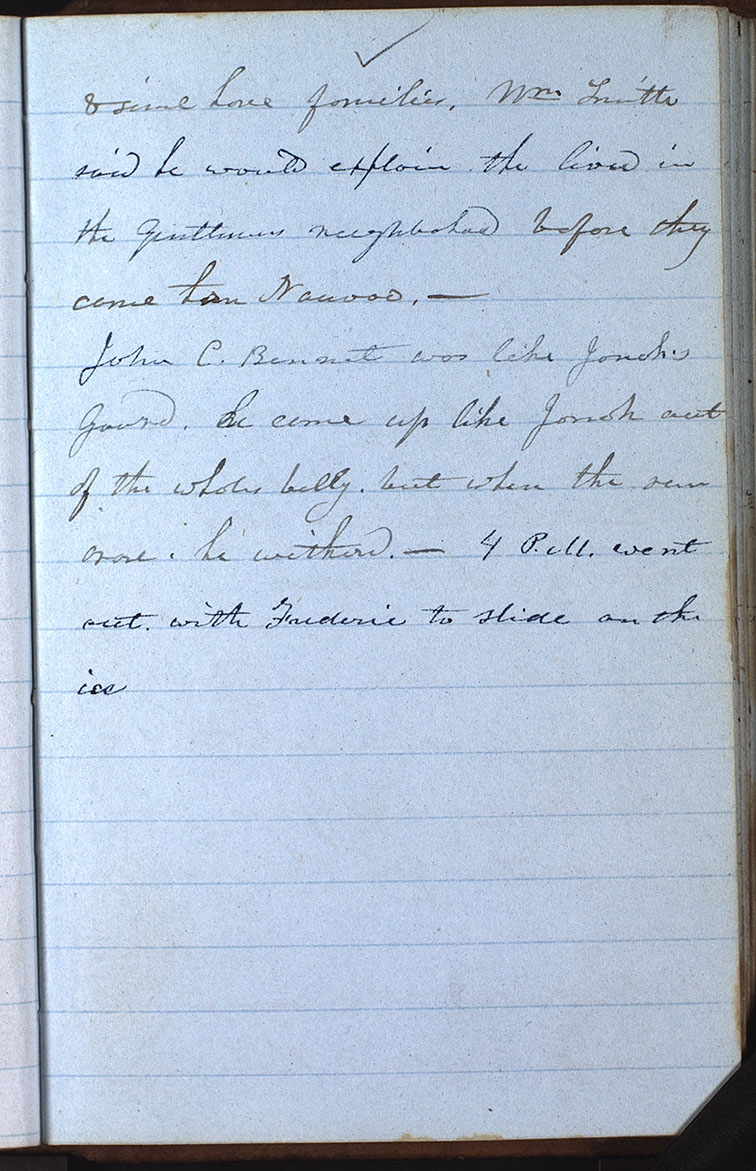 & some have families. Wm Smith
said he would explain the lived in
the Gentlemens neighborhood before they
came to Nauvoo. —
John C. Bennet was like Jonah's
Gourd. he come up like Jonah out
of the whales belly. but when the sun
arose. he witherd. — 4 P.M. went
out. with Frederic to slide on the
ice